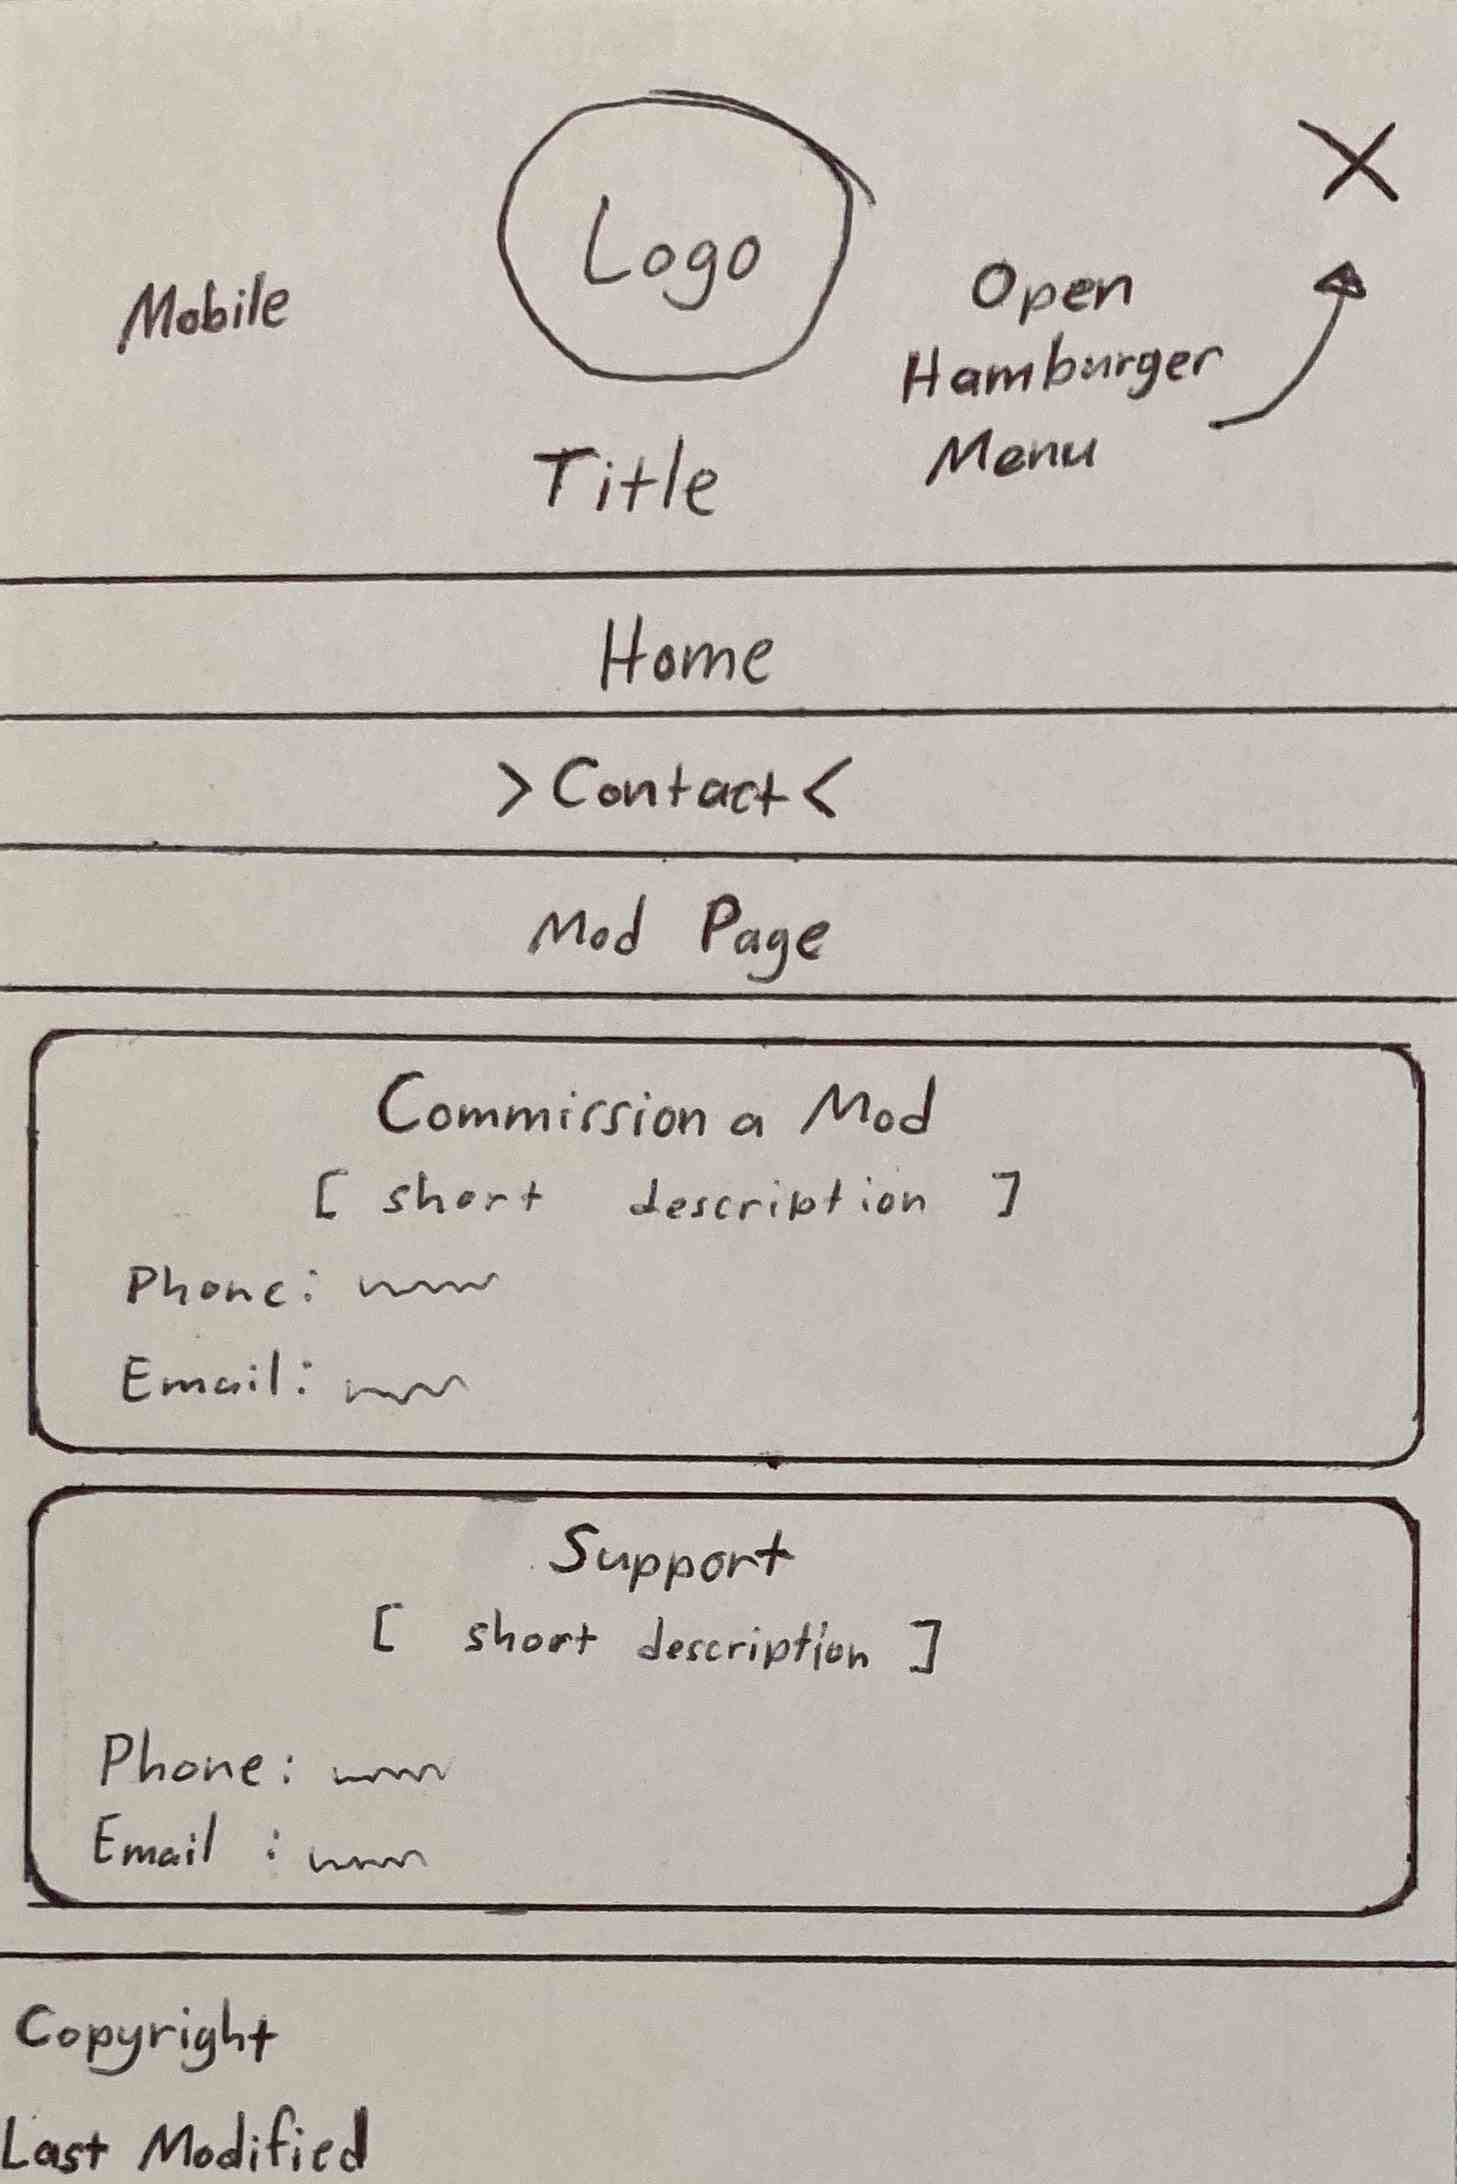 Logo
Mobile
Open
Hamburger
Menu
Title
Home
>Contact<
Mod Page
Commission a Mod
[ short description ]
Phone:
Email:
Support
[ short description ]
Phone:
Email :
Copyright
Last Modified